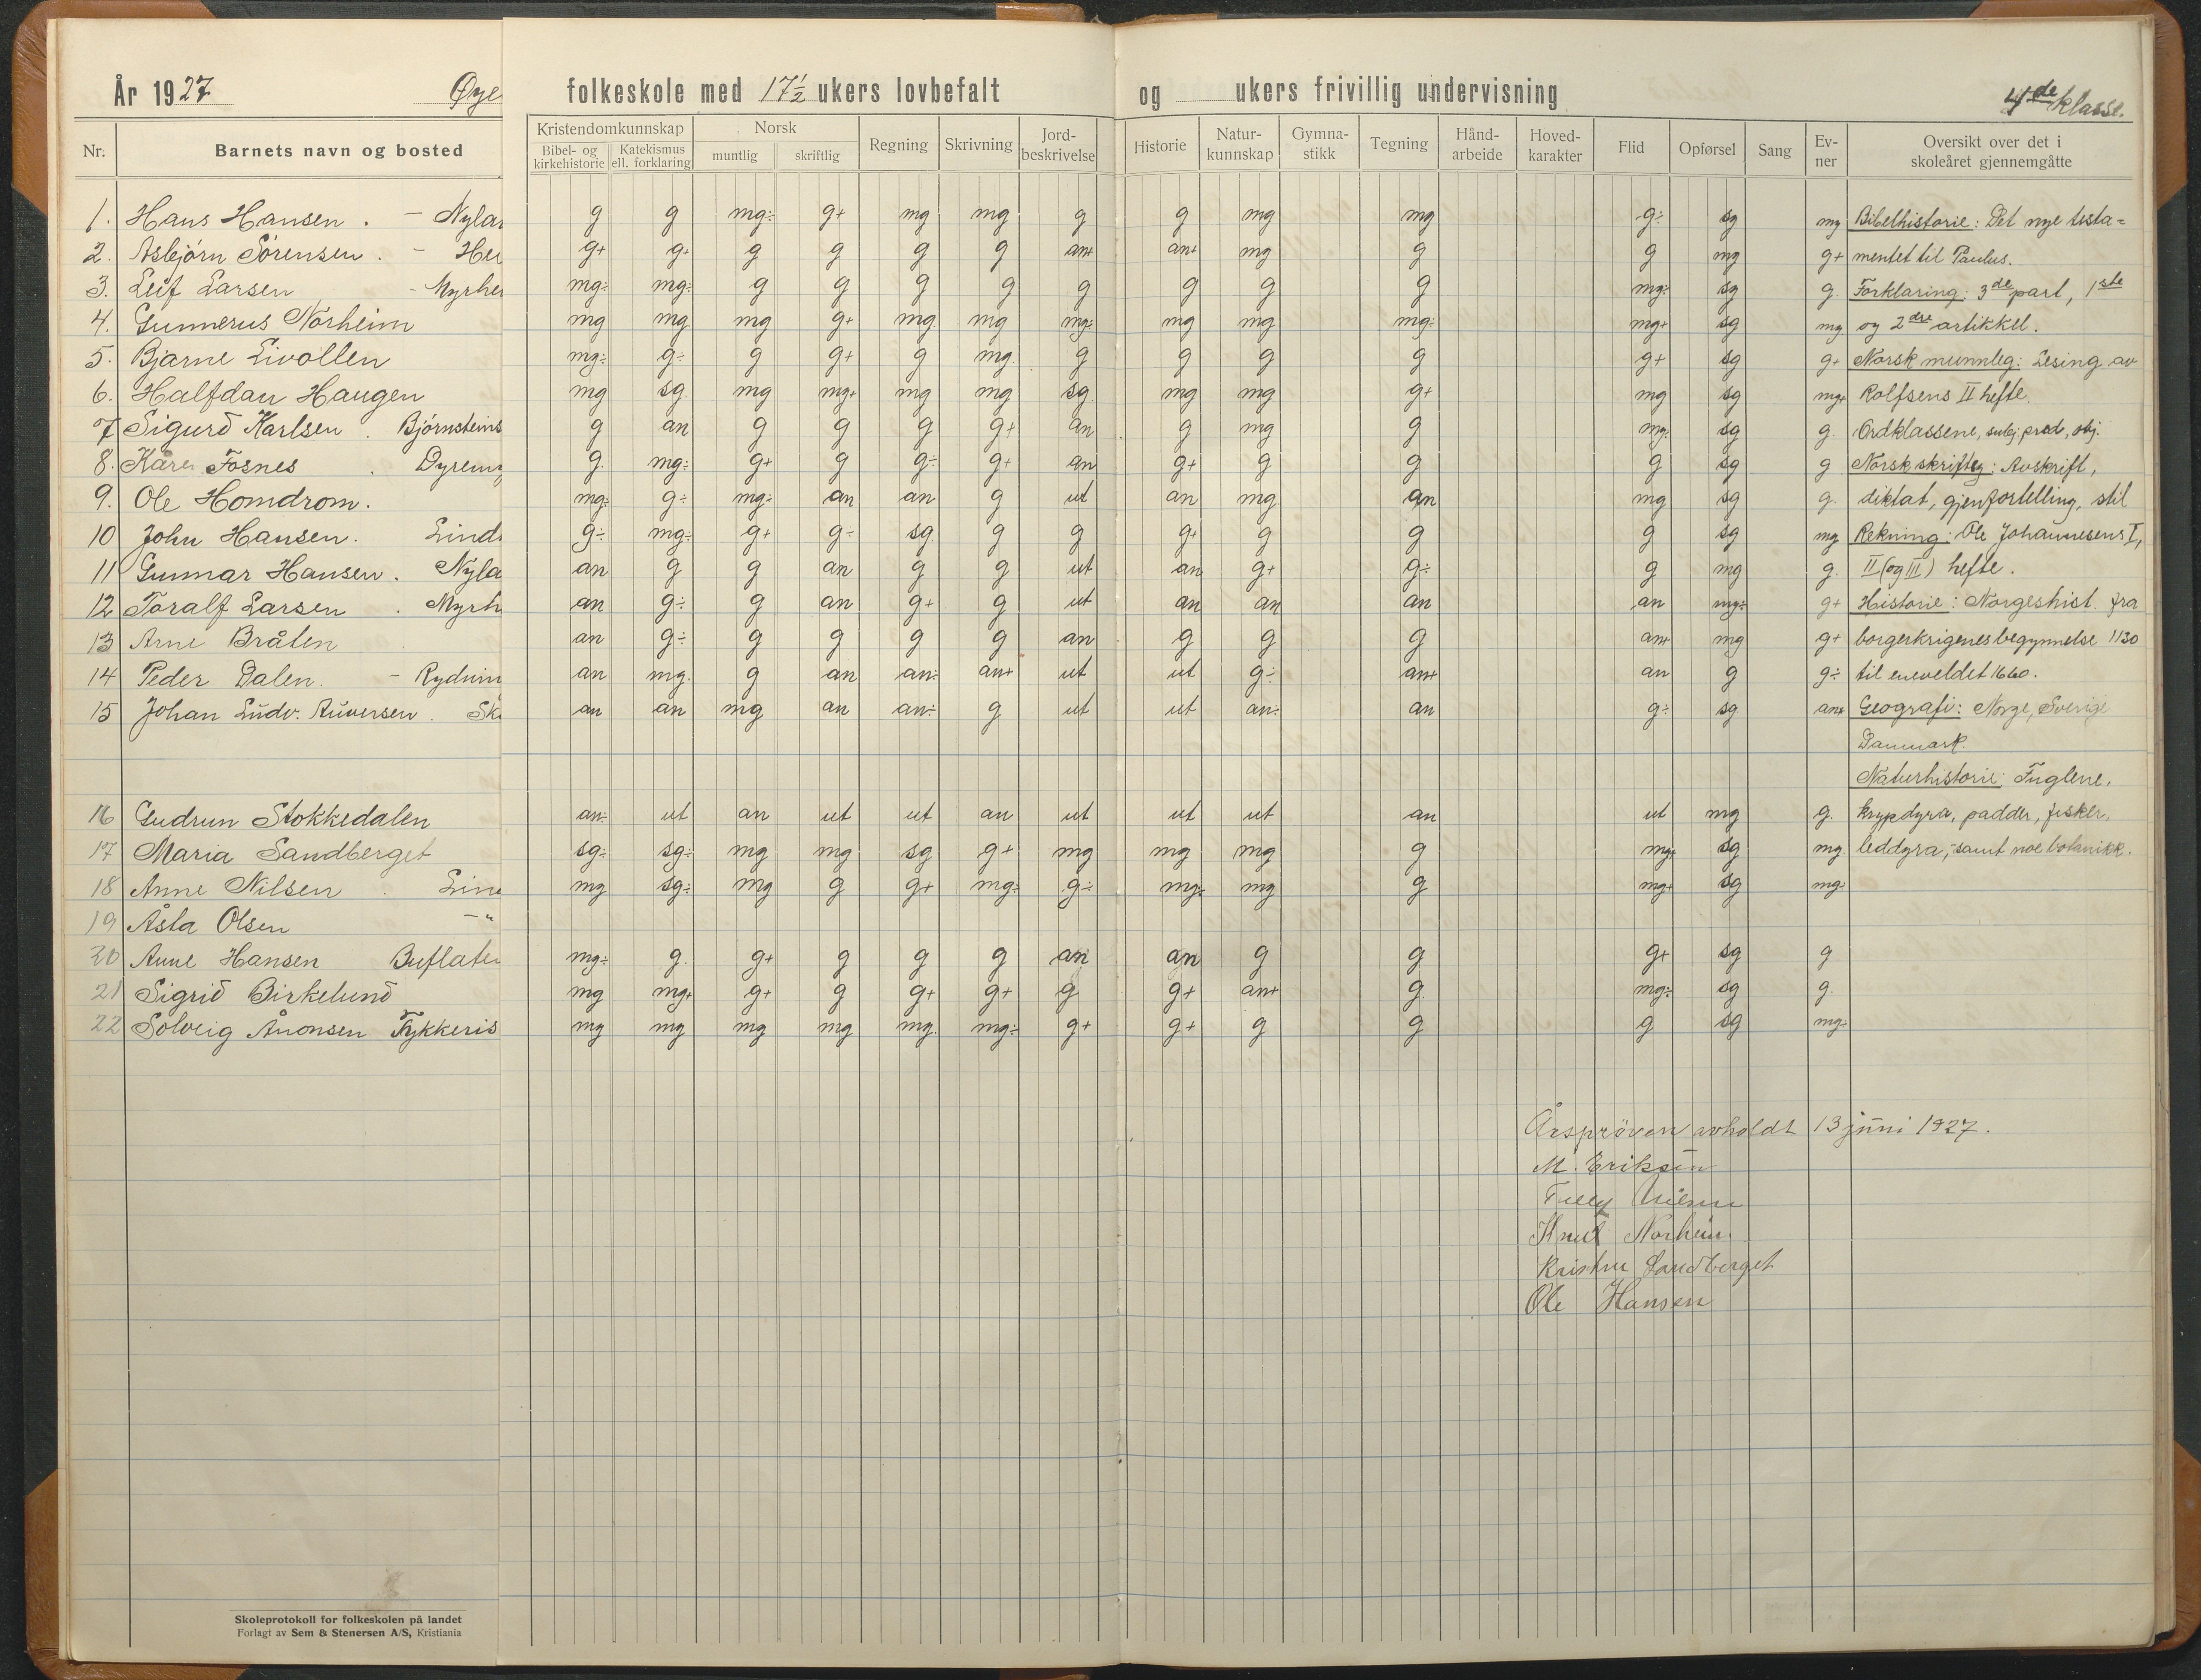 År 1927 Øye folkeskole med 17½ ukers lovbefalt og ukers frivillig undervisning 4de klasse.
Nr. Barnets navn og bosted Kristendomkunnskap Bibel- og kirkehistorie Katekismus ell. forklaring Norsk muntlig skriftlig Regning Skrivning Jord-beskrivelse Historie Natur-kunnskap Gymna-stikk Tegning Hånd-arbeide Hoved-karakter Flid Opførsel Sang Ev-ner Oversikt over det i skoleåret gjennemgåtte
1. Hans Hansen. - Nylan g g mg÷ g+ mg mg g g mg mg g÷ sg mg Bibelhistorie: Det nye testa=
2. Asbjørn Sørensen. - Hei g+ g+ g g g g an+ an+ mg g g mg g+ mentet til Paulus.
3. Leif Larsen - Myrhei mg÷ mg÷ g g g g g g g g mg÷ sg g. Forklaring: 3de part, 1ste
4. Gunnerus Norheim mg mg mg g+ mg. mg mg÷ mg mg mg÷ mg+ sg mg og 2dre artikkel.
5. Bjarne Livollen mg÷ g÷ g g+ g mg. g g g g g+ sg g+ Norsk munnleg: Lesing av
6. Halfdan Haugen mg sg. mg mg+ mg mg sg. mg mg g+ mg sg mg+ Rolfsens II hefte.
7 Sigurd Karlsen. Bjørnsteins g an g g g g+ an g mg g mg÷ sg g. Ordklassene, subj. pred, obj.
8. Kåre Fosnes. Dyremy g. mg÷ g+ g g÷ g+ an g+ g g g sg g Norsk skriftleg: Avskrift,
9. Ole Homdrom. mg÷ g÷ mg÷ an an g ut an mg. an mg sg g. diktat, gjenfortelling, stil
10 John Hansen. Linds g÷ mg÷ g+ g÷ sg. g g g+ g g g sg mg Rekning: Ole Johannesens I,
11 Gunnar Hansen. Nyla an g g an g g ut an g+ g÷ g mg g. II (og III) hefte.
12 Toralf Larsen. Myrh an g÷ g an g+ g ut an an an an mg÷ g+ Historie: Norgeshist. fra
13 Arne Bråten an g÷ g g g g an g g g an+ mg g+ borgerkrigenes begynnelse 1130
14 Peder Dalen. - Rydnin an mg. g an an÷ an+ ut ut g÷ an+ an g g÷ til eneveldet 1660.
15 Johan Ludv. Auversen. Sk an an mg an an÷ g ut ut an÷ an g÷ sg an+ Geografi: Norge, Sverige
Danmark.
Naturhistorie: Fuglene,
16 Gudrun Stokkedalen an÷ ut an ut ut an ut ut ut an ut mg g. krypdyra, padder, fisker,
17 Maria Sandberget sg÷ sg÷ mg mg sg g+ mg mg mg g mg+ sg mg. leddyra, samt noe botanikk.
18 Anne Nilsen. Lin mg sg÷ mg g g+ mg÷ g÷ mg÷ mg g mg+ sg mg÷
19 Åsta Olsen -"
20 Anne Hansen Buflaten mg÷ g. g+ g g g an an g g g+ sg g
21 Sigrid Birkelund mg mg+ g+ g g+ g+ g g+ an+ g. mg÷ sg g.
22 Solveig Ånonsen Tykkeris mg mg mg mg mg. mg÷ g+ g+ g g g sg mg÷
Årsprøven avholdt 13 juni 1927.
M. Eriksen
Nilsen
Knut Norheim.
Kristen Sandberget
Ole Hansen
Skoleprotokoll for folkeskolen på landet
Forlagt av Sem & Stenersen A/S, Kristiania